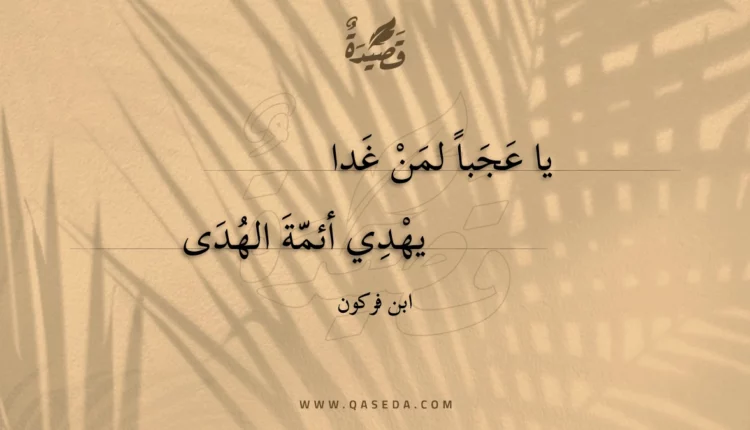 قَصِيْدَةٌ
يا عَجَباً لمَنْ غَدا
يهْدِي أئمّةَ الهُدَى
ابن فركون
WWW.QASEDA.COM